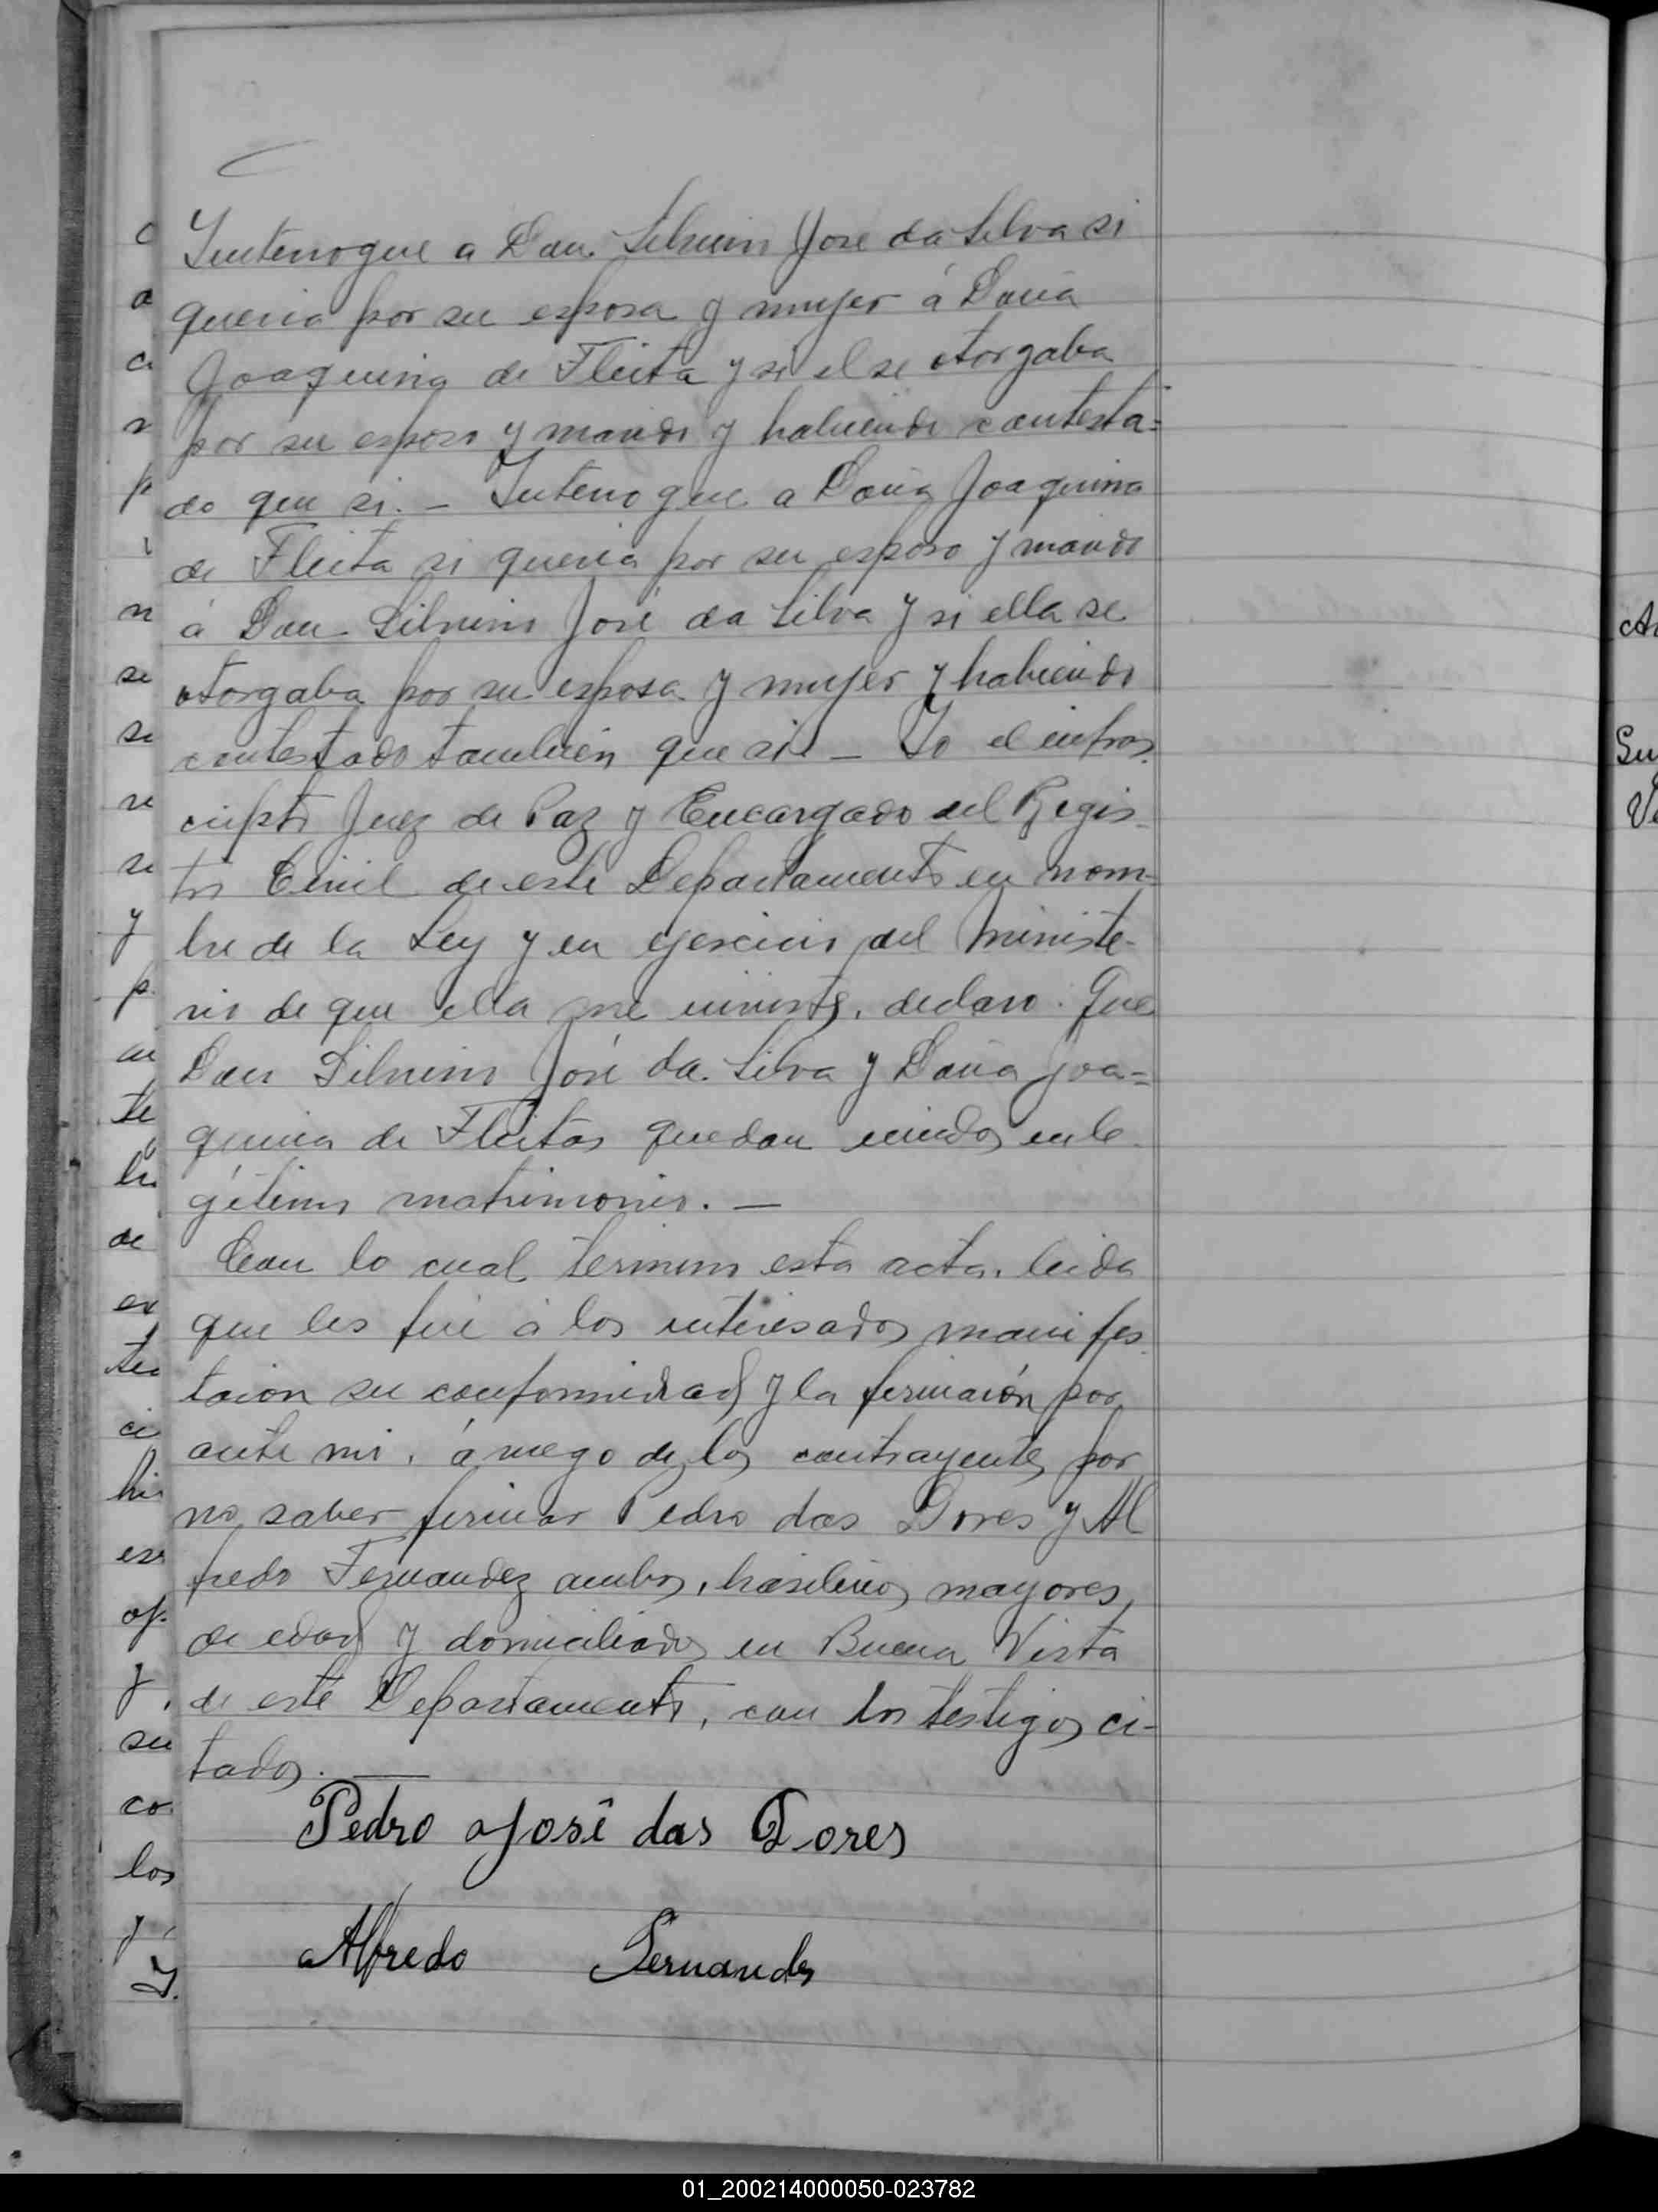 Interrogue a Don Silvino José da Silva si
queria por su esposa y mujer á Doña
Joaquina de Fleita y si el se otorgaba
por su esposo y marido y habiendo contesta=
do que si. — Interrogue a Doña Joaquina
de Fleita si queria por su esposo y marido
á Don Silvino José da Silva y si ella se
otorgaba por su esposa y mujer y habiendo
contestado también que si — Yo el infras
cripto Juez de Paz y Encargado del Regis
tro Civil de este Departamento en nom-
bre de la Ley y en ejercicio del Ministe-
rio de que ella me inviste, declaro: Que
Don Silvino José da Silva y Doña Joa=
quina de Fleitas quedan unidos en le
gítimo matrimonio. —
Con lo cual termino esta acta, leida
que les fué á los interesados manifes
taron su conformidad y la firmarón por
ante mi, á ruego de los contrayentes por
no saber firmar Pedro das Dores y Al
fredo Fernandez ambos, brasileros mayores
de edad y domiciliados en Buena Vista
de este Departamento, con los testigos ci-
tados. —
Pedro José das Dores
Alfredo Fernandes
01_200214000050-023782